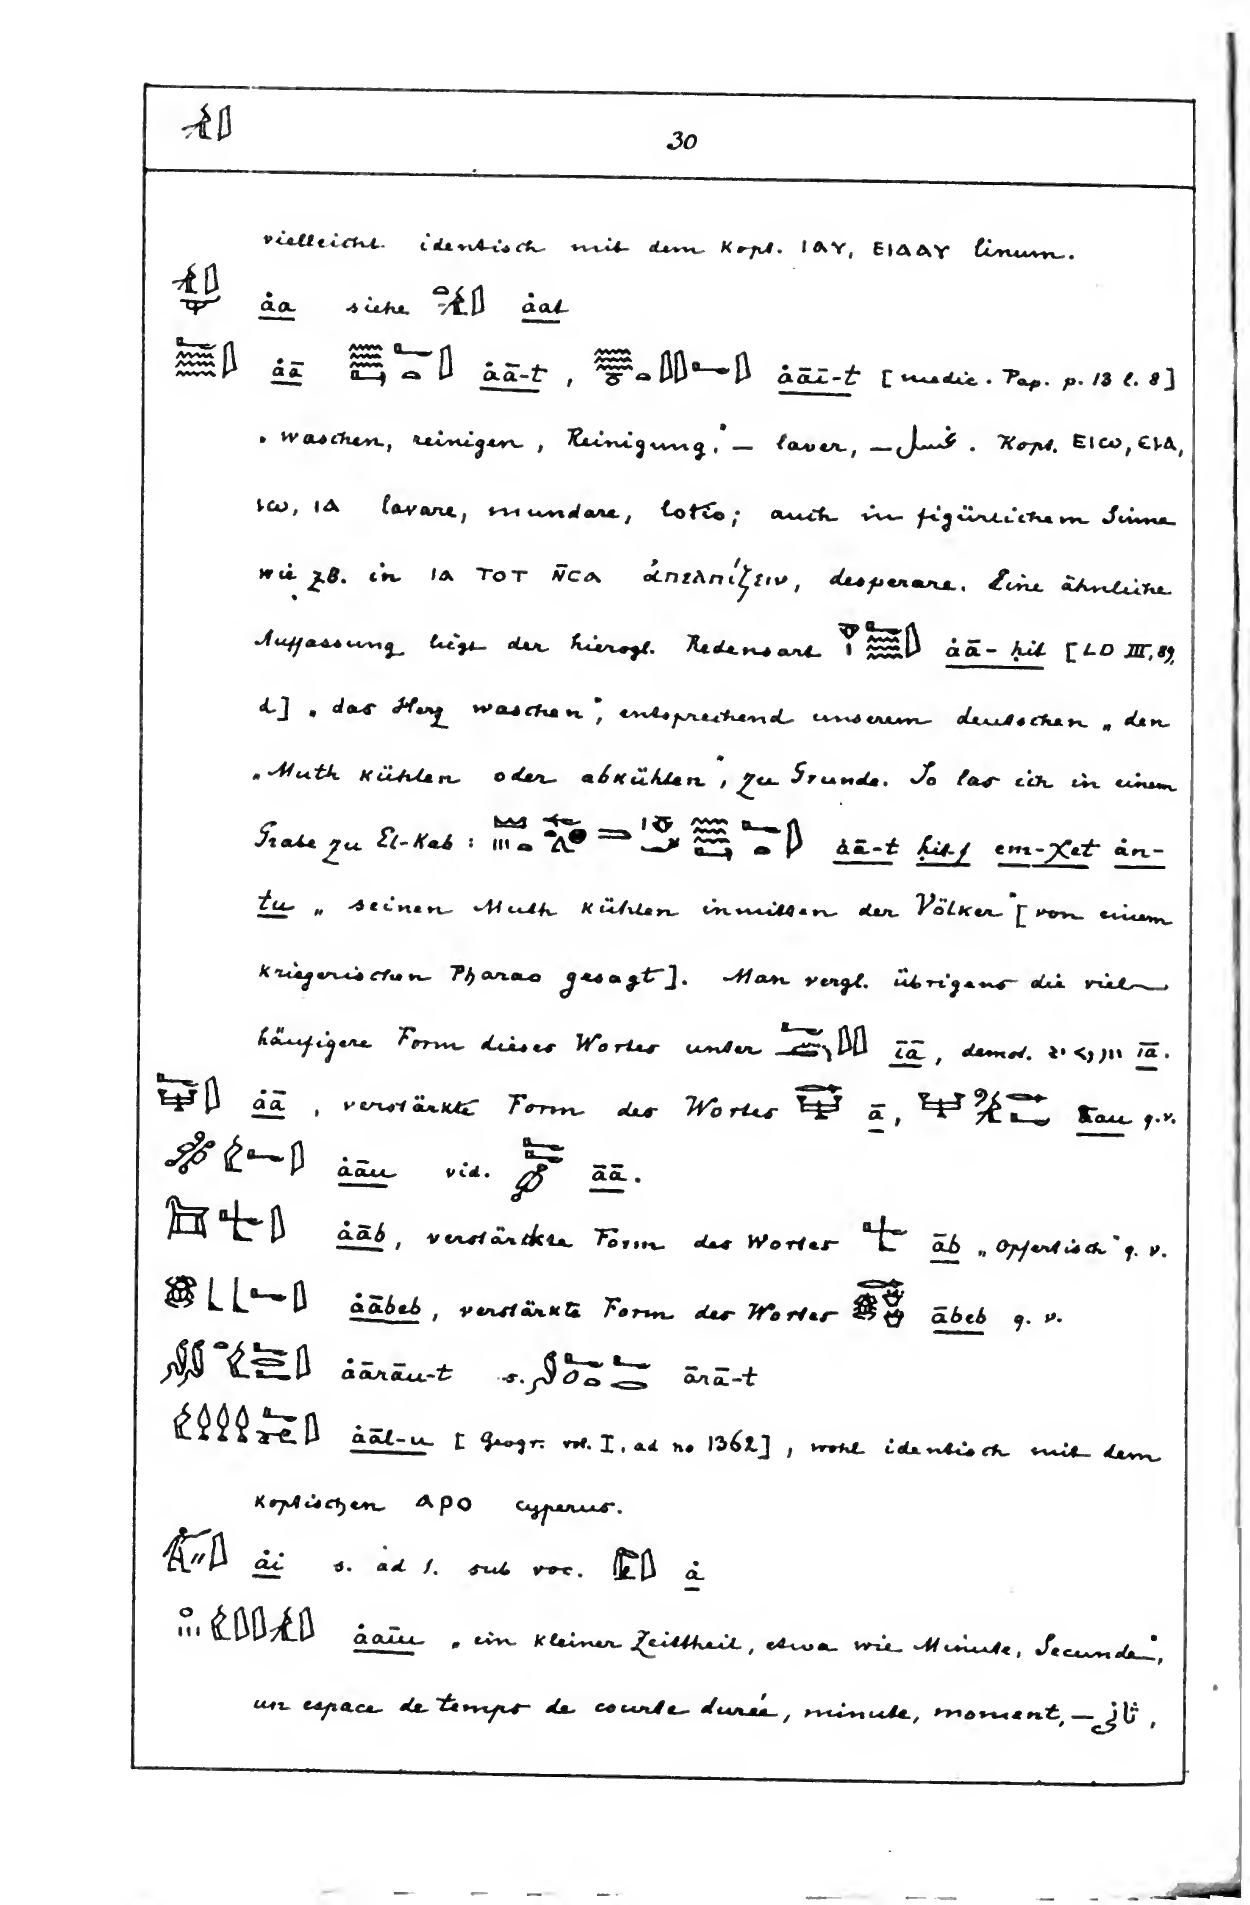 30
vielleicht identisch mit dem Kopt. ⲓⲁⲩ, ⲉⲓⲁⲁⲩ linum.
åa siehe åat
åā åā-t, åāī-t [medic. Pap. p. 13 l. 8]
„waschen, reinigen, Reinigung." — laver, — غسل. Kopt. ⲉⲓⲱ, ⲉⲓⲁ,
ⲓⲱ, ⲓⲁ lavare, mundare, lotio; auch in figürlichem Sinne
wie zB. in ⲓⲁ ⲧⲟⲧ ⲛ̄ⲥⲁ ἀπελπίζειν, desperare. Eine ähnliche
Auffassung liegt der hierogl. Redensart åā-ḥit [LD III, 89,
d] „das Herz waschen", entsprechend unserem deutschen „den
„Muth kühlen oder abkühlen", zu Grunde. So las ich in einem
Grabe zu El-Kab: åā-t ḥit-f em-χet ån-
tu „seinen Muth kühlen inmitten der Völker" [von einem
kriegerischen Pharao gesagt]. Man vergl. übrigens die viel
häufigere Form dieses Wortes unter īā, demot. īā.
åā, verstärkte Form des Wortes ā, kau q.v.
åāu vid. āā.
åāb, verstärkte Form des Wortes āb „Opfertisch" q. v.
åābeb, verstärkte Form des Wortes ābeb q. v.
åārāu-t s. ārā-t
åāl-u [Geogr. vol. I, ad no 1362], wohl identisch mit dem
koptischen ⲁⲣⲟ cyperus.
åi s. ad 1. sub voc. å
åaīu „ein kleiner Zeittheil, etwa wie Minute, Secunde",
un espace de temps de courte durée, minute, moment, —